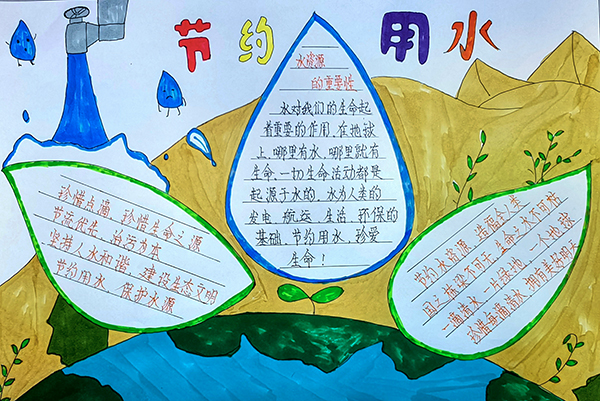 节约用水
水资源
的重要性
水对我们的生命起
着重要的作用,在地球
上,哪里有水,哪里就有
生命.一切生命活动都是
起源于水的,水为人类的
发电、航运、生活、环保的
基础,节约用水,珍爱
生命!
珍惜点滴 珍惜生命之源
节流优先,治污为本
坚持人水和谐,建设生态文明
节约用水 保护水源
节约水资源,造福全人类
国之栋梁不可无,生命之水不可枯
一滴清水,一片绿地,一个地球
珍惜每滴清水,拥有美好明天